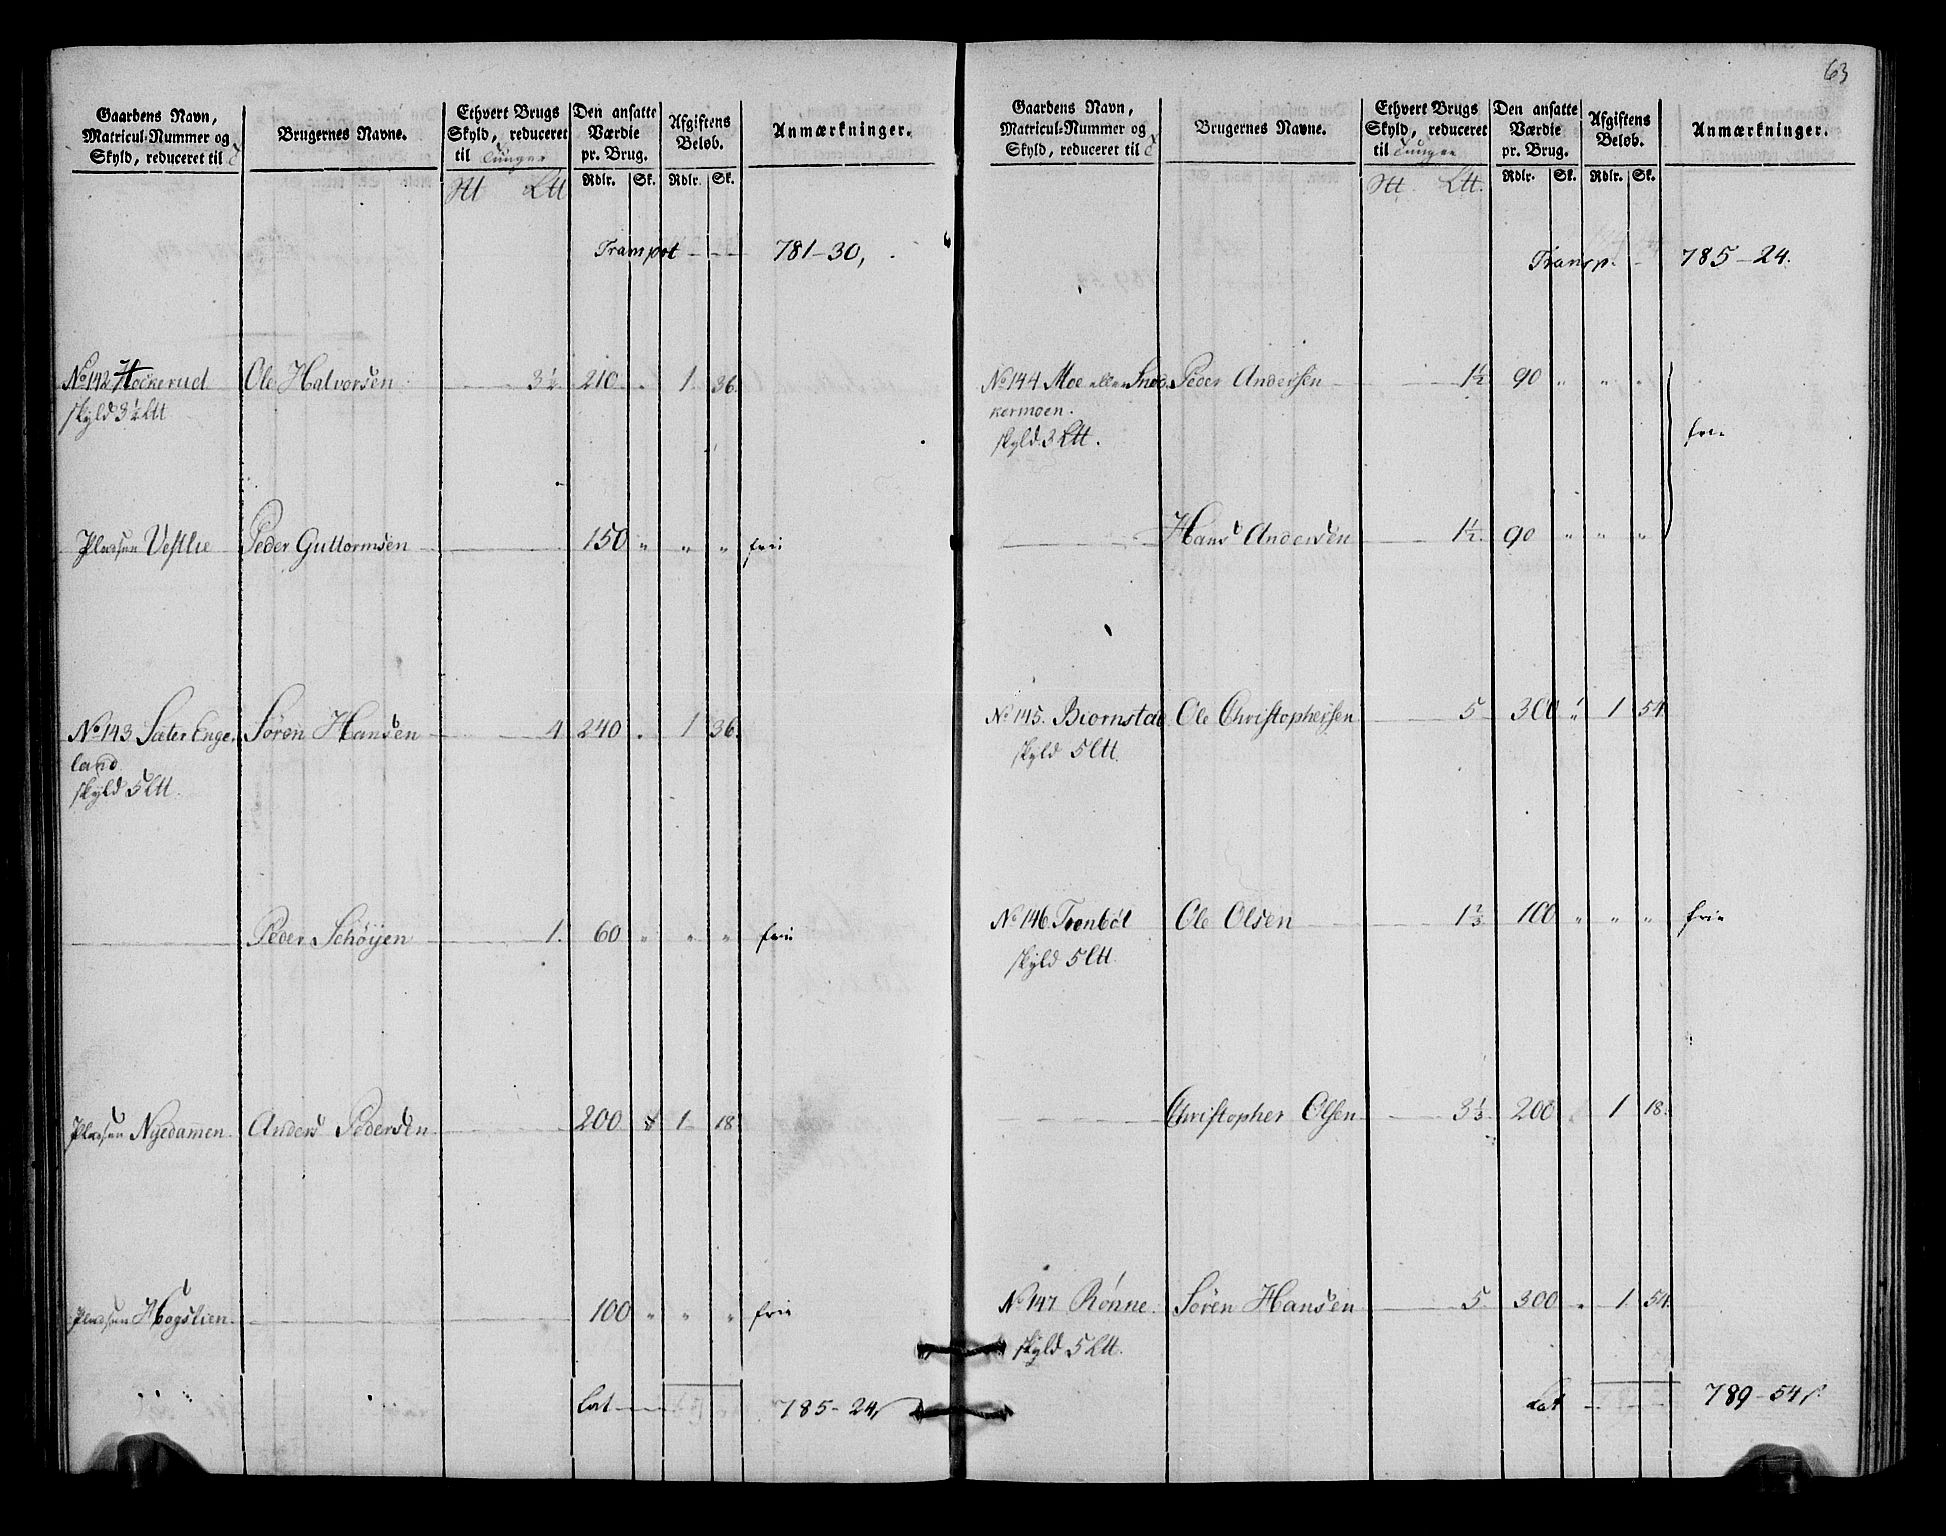 Gaardens Navn, Matricul-Nummer og Skyld, reduceret til | Brugernes Navne. | Ethvert Brugs Skyld, reduceret til Tunger | Den ansatte Værdie pr. Brug. | Afgiftens Beløb. | Anmærkninger.
Rdlr. Sk. Rdlr. Sk.
Transport - - - 781-30,
No 142 Hockerud Ole Halvorsen 3½ 210 . 1 36.
skyld 3½ Ltt
Pladsen Vestlie Peder Guttormsen 150 " " " frii
No 143 Sæter Enge- Søren Hansen 4 240 . 1 36.
land
skyld 5 Ltt.
Peder Schöijen 1. 60 " " " frii
Pladsen Nyedamen Anders Pedersen 200 1 18
Pladsen Hogslien 100 " " " frie
Lat 785-24,
63
Gaardens Navn, Matricul-Nummer og Skyld, reduceret til | Brugernes Navne. | Ethvert Brugs Skyld, reduceret til Tunger | Den ansatte Værdie pr. Brug. | Afgiftens Beløb. | Anmærkninger.
Rdlr. Sk. Rdlr. Sk.
Transp. - 785-24.
No 144 Moe eller Peder Andersen 1½ 90 " " "
kermoen.
skyld 3 Ltt.
frie
Hans Andersen 1½. 90 " " "
No 145. Biørnstad Ole Christophersen 5 300 1 54
skyld 5 Ltt
No 146 Ole Olsen 1⅔ 100 " " " frie
skyld 5 Ltt
Christopher Olsen 3⅓. 200 1 18.
No 147 Rönne Sören Hansen 5. 300 . 1 54.
skyld 5 Ltt.
Lat 789-54